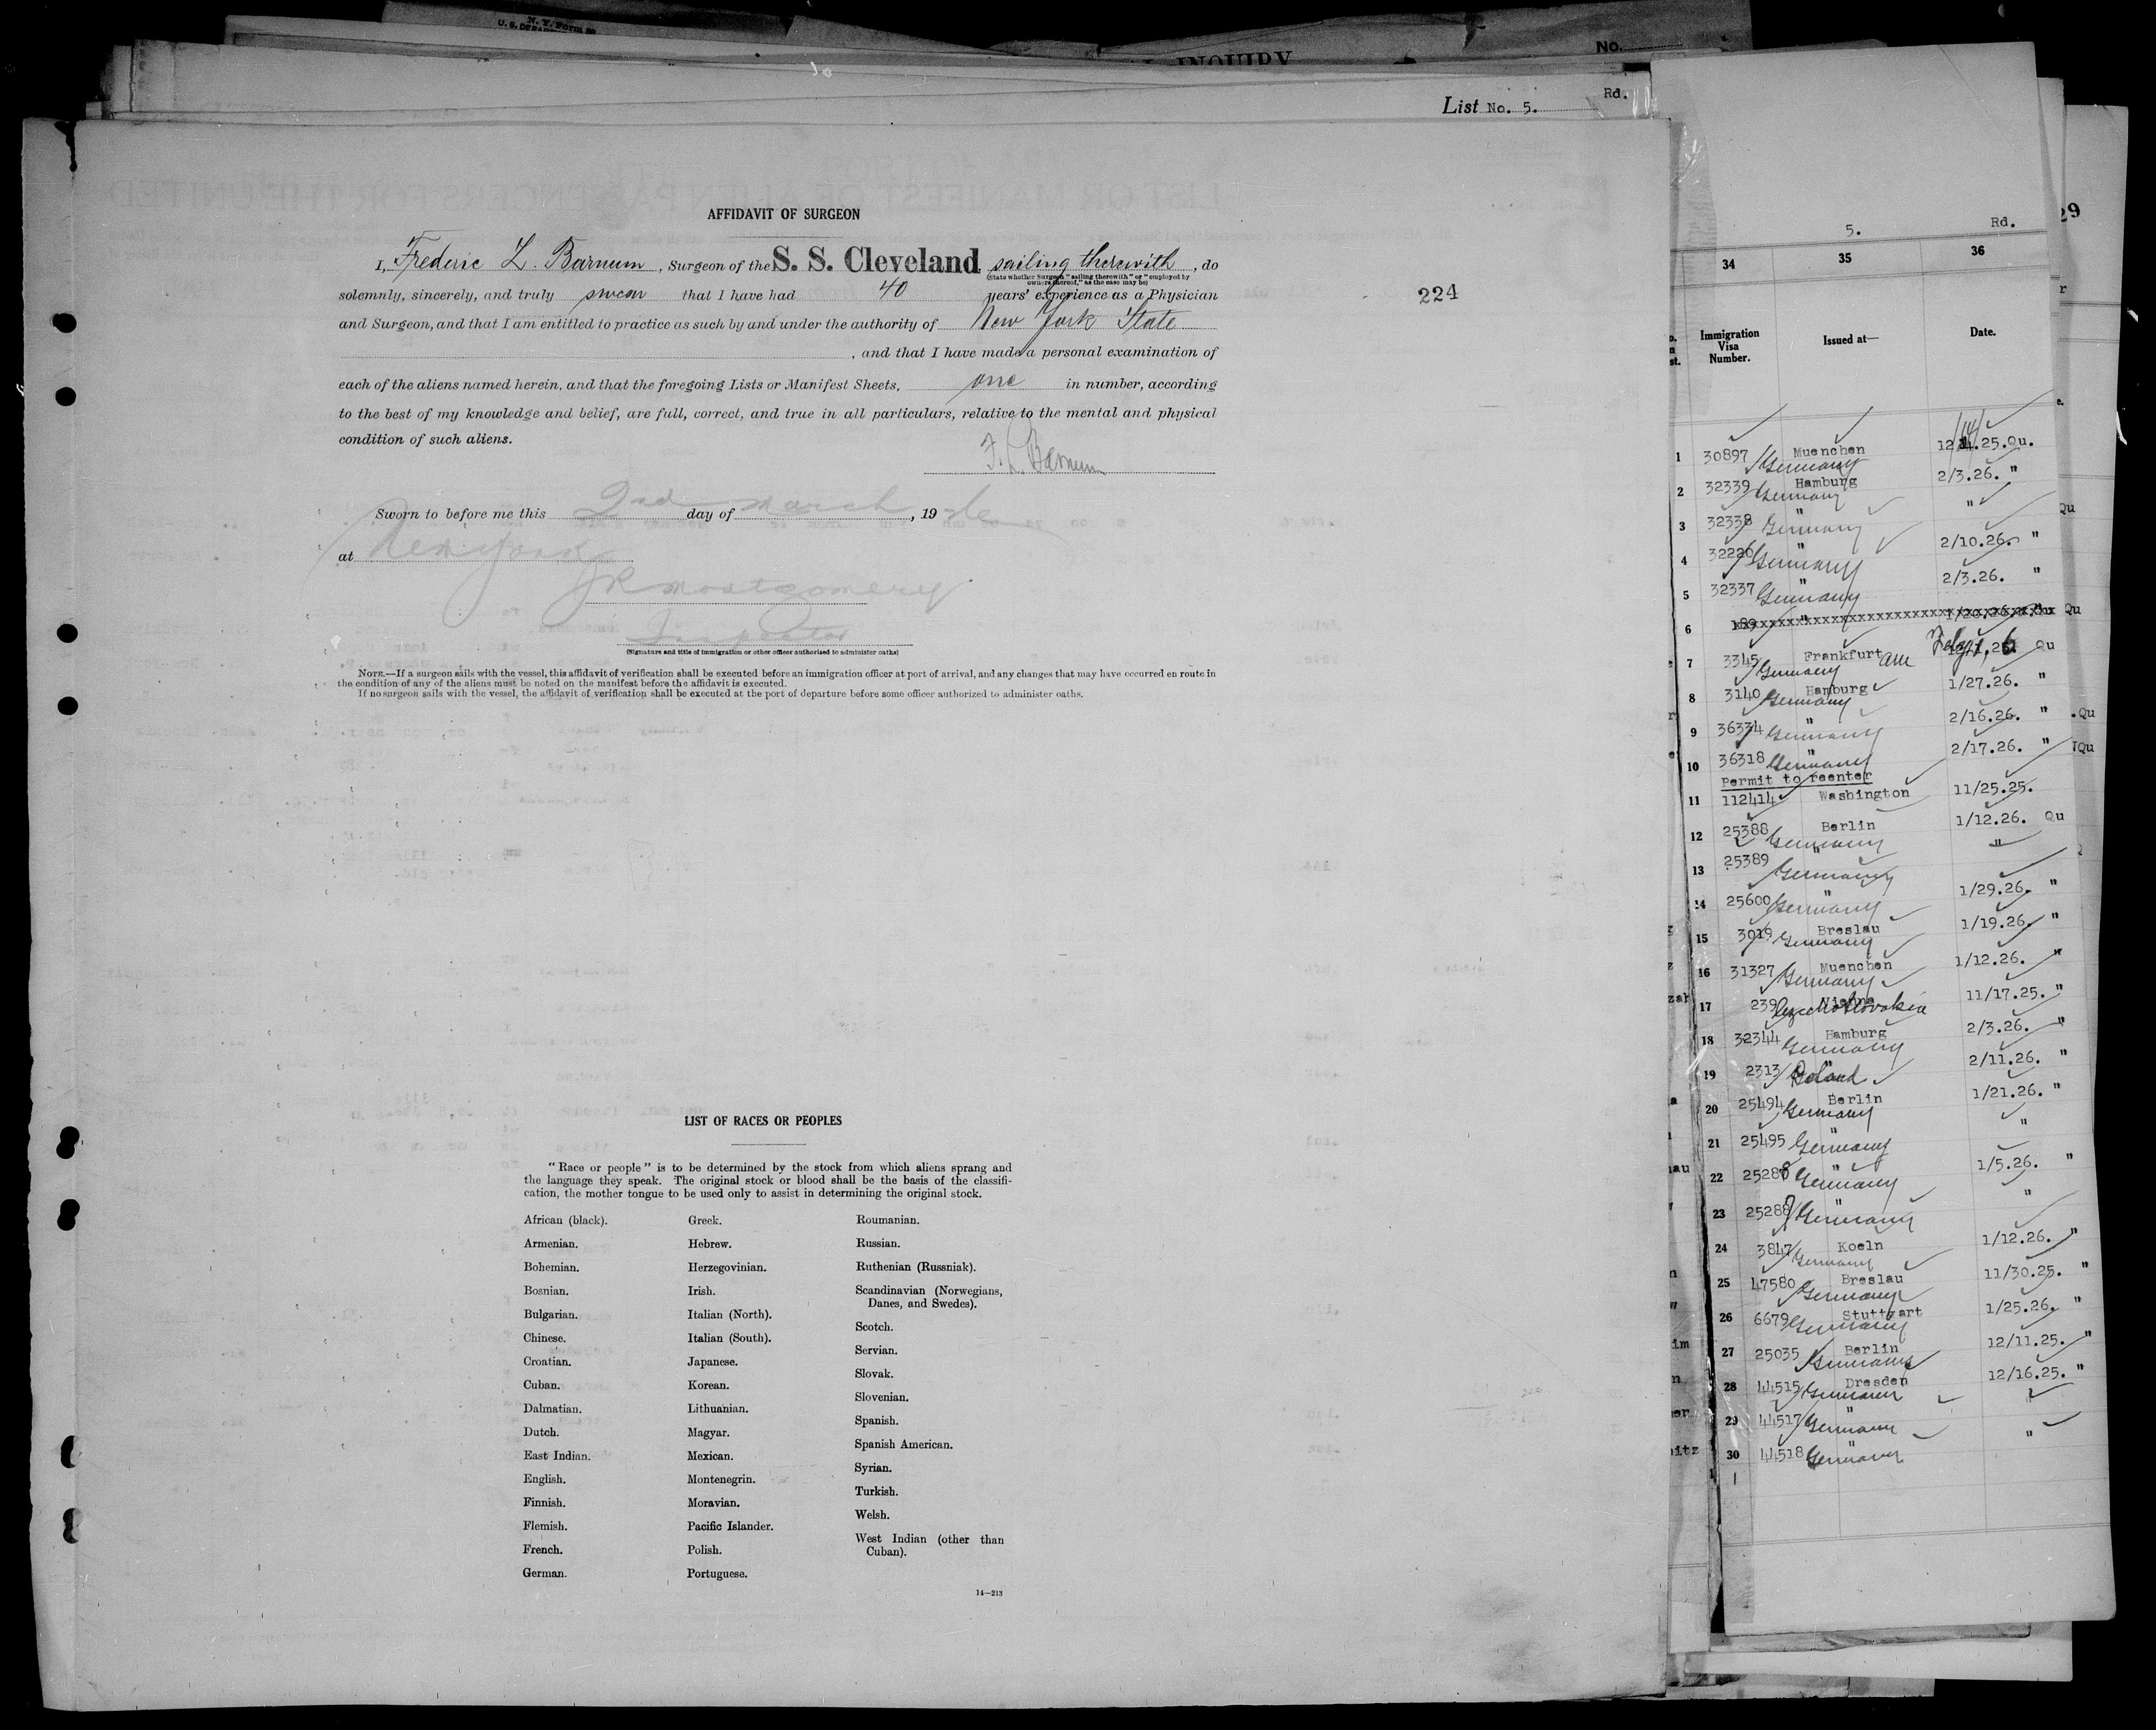 N. Y. Form 59
INQUIRY
No.
List No. 5.
Rd.
AFFIDAVIT OF SURGEON
I, Frederic L. Barnum, Surgeon of the S. S. Cleveland sailing therewith, do
(State whether Surgeon "sailing therewith" or "employed by
owners thereof," as the case may be)
solemnly, sincerely, and truly swear that I have had 40 years' experience as a Physician
and Surgeon, and that I am entitled to practice as such by and under the authority of New York State
, and that I have made a personal examination of
each of the aliens named herein, and that the foregoing Lists or Manifest Sheets, one in number, according
to the best of my knowledge and belief, are full, correct, and true in all particulars, relative to the mental and physical
condition of such aliens.
F. L. Barnum
Sworn to before me this 2nd day of March, 1926
at New York
JR Montgomery
Inspector
(Signature and title of immigration or other officer authorized to administer oaths)
NOTE.—If a surgeon sails with the vessel, this affidavit of verification shall be executed before an immigration officer at port of arrival, and any changes that may have occurred en route in
the condition of any of the aliens must be noted on the manifest before the affidavit is executed.
If no surgeon sails with the vessel, the affidavit of verification shall be executed at the port of departure before some officer authorized to administer oaths.
224
LIST OF RACES OR PEOPLES
"Race or people" is to be determined by the stock from which aliens sprang and
the language they speak. The original stock or blood shall be the basis of the classifi-
cation, the mother tongue to be used only to assist in determining the original stock.
African (black).
Armenian.
Bohemian.
Bosnian.
Bulgarian.
Chinese.
Croatian.
Cuban.
Dalmatian.
Dutch.
East Indian.
English.
Finnish.
Flemish.
French.
German.
Greek.
Hebrew.
Herzegovinian.
Irish.
Italian (North).
Italian (South).
Japanese.
Korean.
Lithuanian.
Magyar.
Mexican.
Montenegrin.
Moravian.
Pacific Islander.
Polish.
Portuguese.
Roumanian.
Russian.
Ruthenian (Russniak).
Scandinavian (Norwegians,
Danes, and Swedes).
Scotch.
Servian.
Slovak.
Slovenian.
Spanish.
Spanish American.
Syrian.
Turkish.
Welsh.
West Indian (other than
Cuban).
14—213
5. Rd.
34 35 36
Immigration Visa Number. Issued at— Date.
1 30897 Muenchen Germany 25.Qu.
2 32339 Hamburg Germany 2/3.26. "
3 32338 " Germany "
4 32226 " Germany 2/10.26. "
5 32337 " Germany 2/3.26. "
6 189 " 1/20.26. Qu
7 3345 Frankfurt am Germany Qu
8 3140 Hamburg Germany 1/27.26. "
9 36334 " Germany 2/16.26. "
10 36318 " Germany 2/17.26. "
Permit to reenter
11 112414 Washington 11/25.25.
12 25388 Berlin Germany 1/12.26. Qu
13 25389 " Germany "
14 25600 " Germany 1/29.26. "
15 3019 Breslau Germany 1/19.26. "
16 31327 Muenchen Germany 1/12.26. "
17 239 Vienna Czechoslovakia 11/17.25. "
18 32344 Hamburg Germany 2/3.26. "
19 2313 " Poland 2/11.26. "
20 25494 Berlin Germany 1/21.26. "
21 25495 " Germany "
22 25288 " Germany 1/5.26. "
23 25289 " Germany "
24 3847 Koeln Germany 1/12.26. "
25 47580 Breslau Germany 11/30.25. "
26 6679 Stuttgart Germany 1/25.26. "
27 25035 Berlin Germany 12/11.25. "
28 44515 Dresden Germany 12/16.25. "
29 44517 " Germany "
30 44518 " Germany "